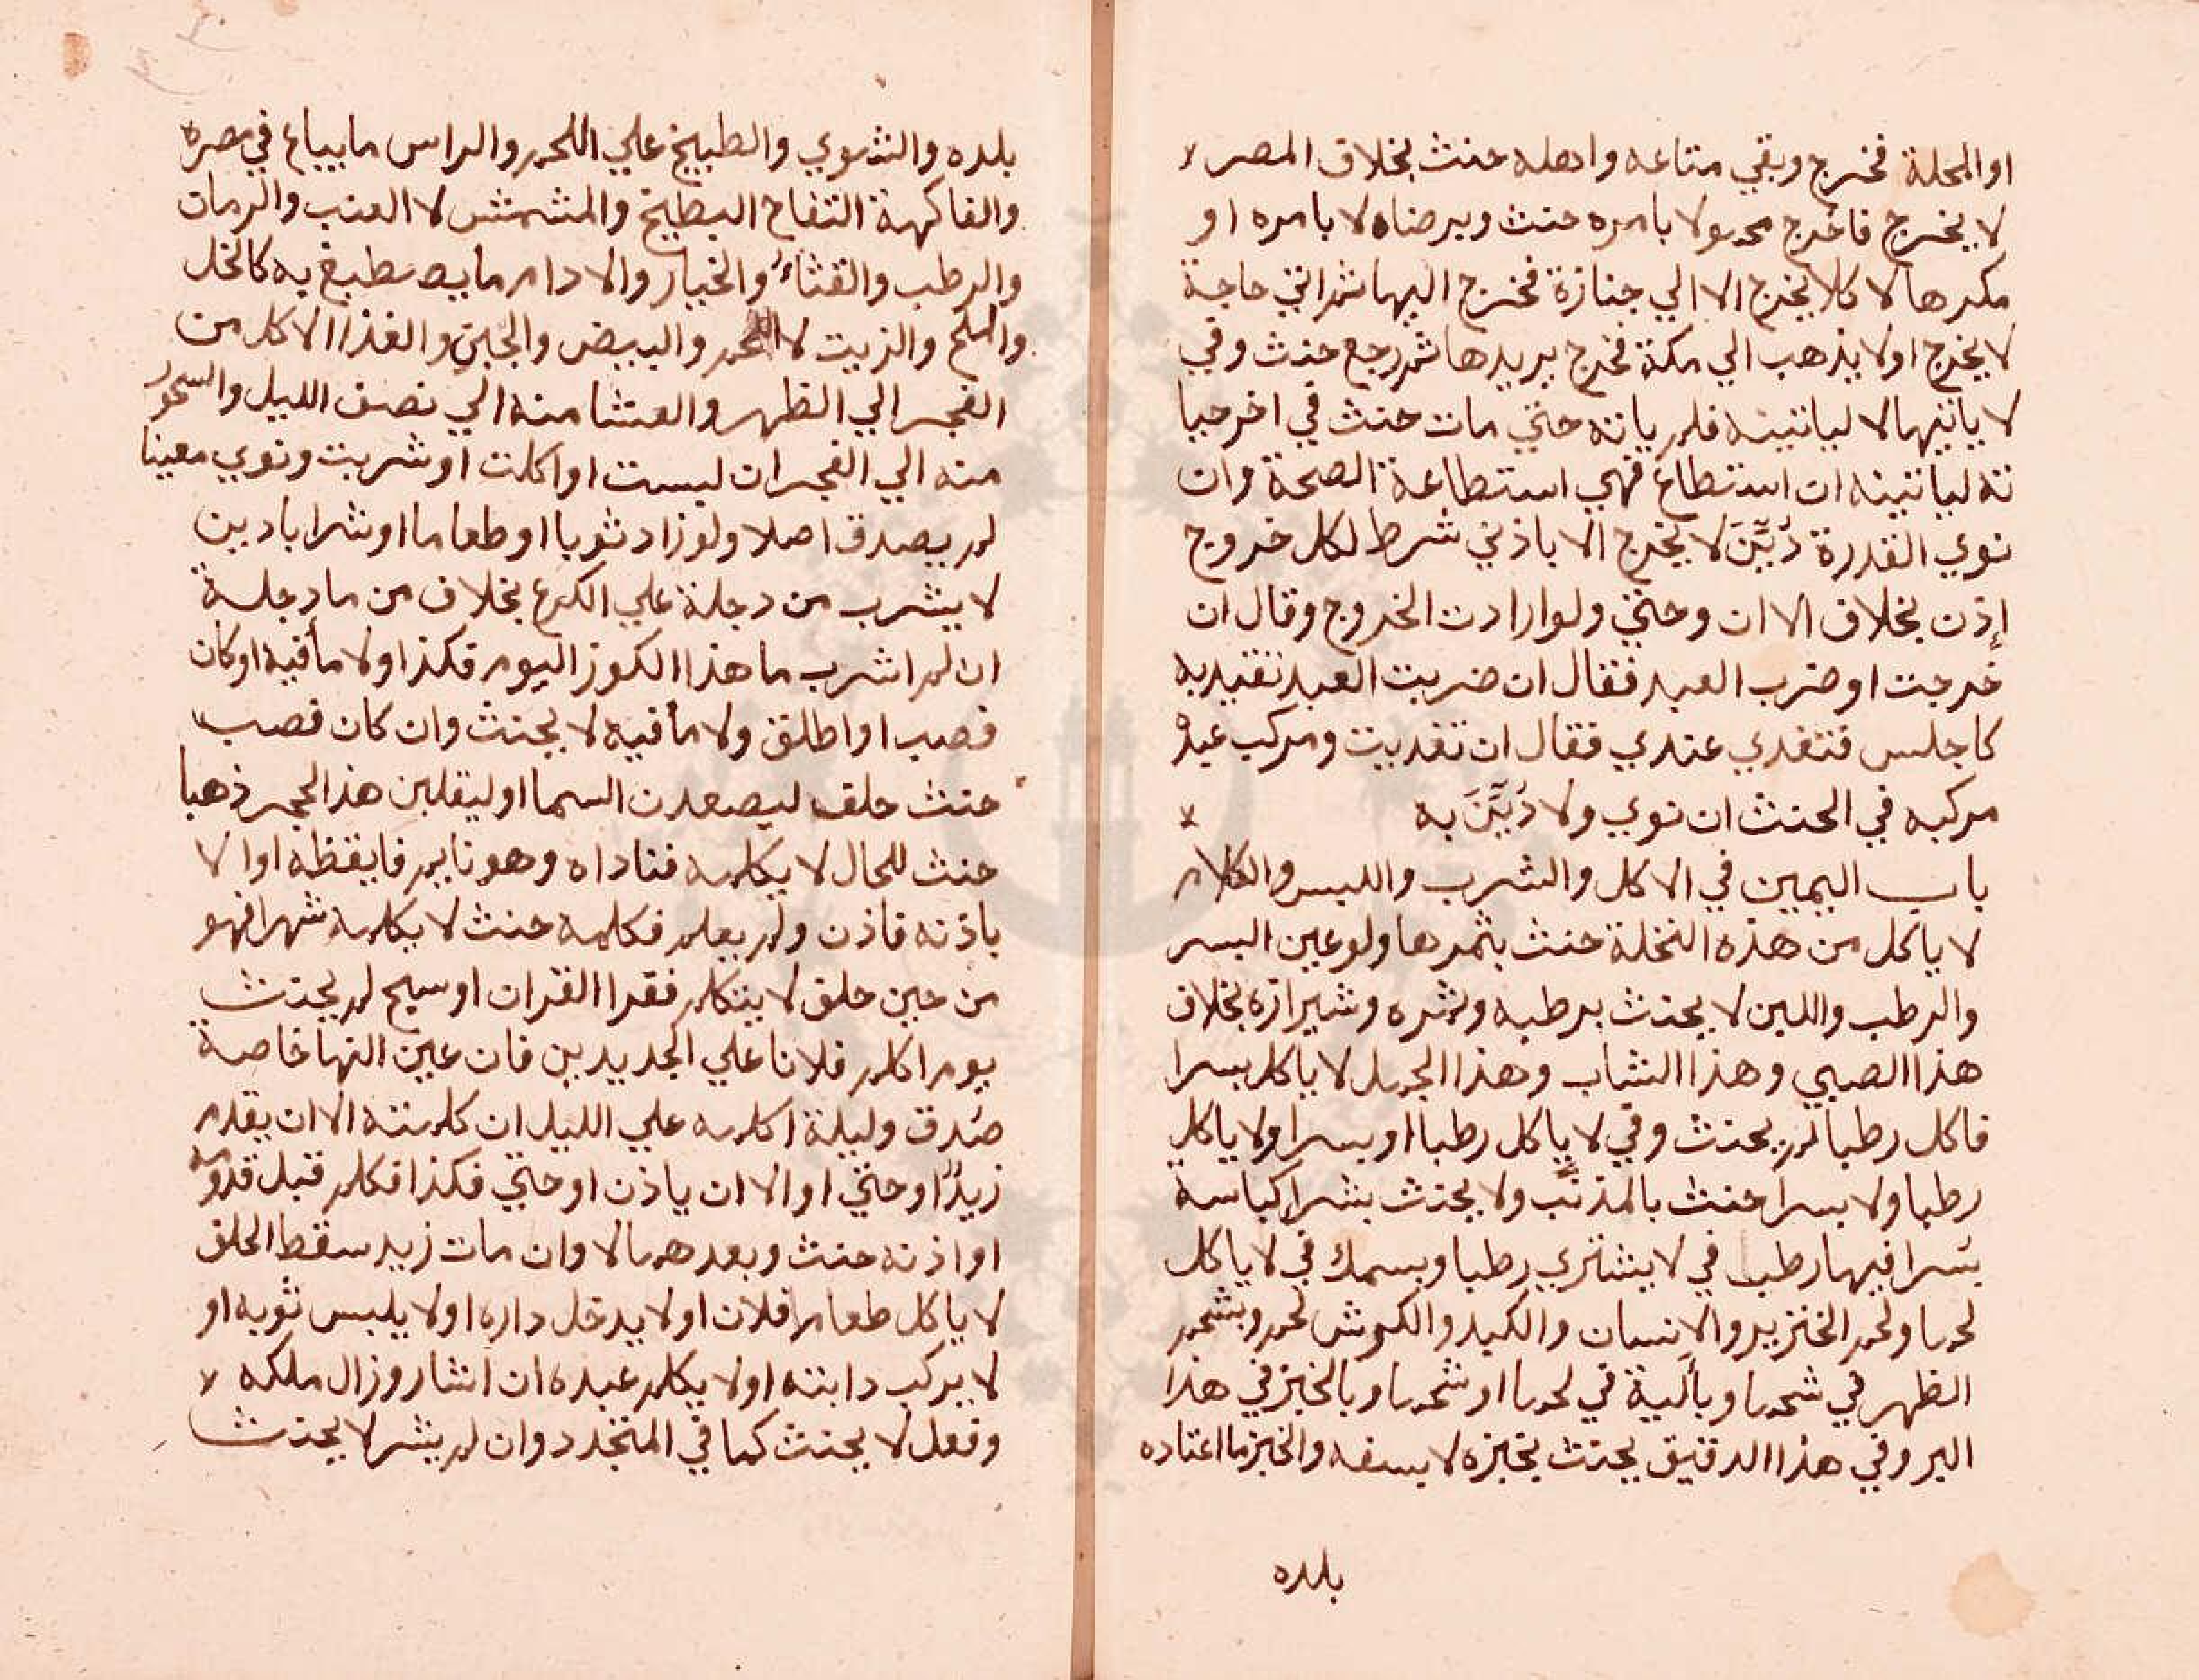 او المحلة فخرج وبقي متاعه واهله حنث بخلاف المصر
لا يخرج فاخرج محمولا بامره حنث وبرضاه لا بامره او
مكرها لا كلا يخرج الا الي جنازة فخرج اليها ثم اتي حاجة
لا يخرج او لا يذهب الي مكة فخرج يريدها ثم رجع حنث وفي
لا ياتيها لا لياتينه فلم ياته حتي مات حنث في اخر حيا
ته لياتينه ان استطاع فهي استطاعة الصحة وان
نوي القدرة دُيِّنَ لا يخرج الا باذني شرط لكل خروج
إذن بخلاف الا ان وحتي ولو ارادت الخروج وقال ان
خرجت او ضرب العبد فقال ان ضربت العبد تقيد به
كاجلس فتغدي عندي فقال ان تغديت ومركب عبده
مركبه في الحنث ان نوي ولا دُيِّنَ به
باب اليمين في الاكل والشرب واللبس والكلام
لا ياكل من هذه النخلة حنث بثمرها ولو عين البسر
والرطب واللبن لا يحنث برطبه وتمره وشيرازه بخلاف
هذا الصبي وهذا الشاب وهذا الحمل لا ياكل بسرا
فاكل رطبا لم يحنث وفي لا ياكل رطبا او بسرا ولا ياكل
رطبا ولا بسرا حنث بالمذنب ولا يحنث بشرا كباسة
بسرا فيها رطب في لا يشتري رطبا وبسمك في لا ياكل
لحما ولحم الخنزير والانسان والكبد والكرش لحم وبشحم
الظهر في شحما وبألية في لحما او شحما وبالخبز في هذا
البر وفي هذا الدقيق يحنث بخبزه لا بسفه والخبز ما اعتاده
بلده
بلده والشوي والطبيخ علي اللحم والراس ما يباع في مصره
والفاكهة التفاح البطيخ والمشمش لا العنب والرمان
والرطب والقثاء والخيار والادام ما يصطبغ به كالخل
والملح والزيت لا اللحم والبيض والجبن والغذا الاكل من
الفجر الي الظهر والعشا منه الي نصف الليل والسحور
منه الي الفجر ان لبست او اكلت او شربت ونوي معينا
لم يصدق اصلا ولو زاد ثوبا او طعاما او شرابا دين
لا يشرب من دجلة علي الكرع بخلاف من ما دجلة
ان لم اشرب ما هذا الكوز اليوم فكذا ولا ما فيه او كان
فصب او اطلق ولا ما فيه لا يحنث وان كان فصب
حنث حلف ليصعدن السما او ليقلبن هذا الحجر ذهبا
حنث للحال لا يكلمه فناداه وهو نايم فايقظه او الا
باذنه فاذن ولم يعلم فكلمه حنث لا يكلمه شهرا فهو
من حين حلف لا يتكلم فقرا القران او سبح لم يحنث
يوم اكلم فلانا علي الجديدين فان عين النها خاصة
صُدق وليلة اكلمه علي الليل ان كلمته الا ان يقدم
زيدٌ او حتي او الا ان ياذن او حتي فكذا فكلم قبل قدومه
او اذنه حنث وبعدهما لا وان مات زيد سقط الحلف
لا ياكل طعام فلان او لا يدخل داره او لا يلبس ثوبه او
لا يركب دابته او لا يكلم عبده ان اشار وزال ملكه
وفعل لا يحنث كما في المتجدد وان لم يشر لا يحنث